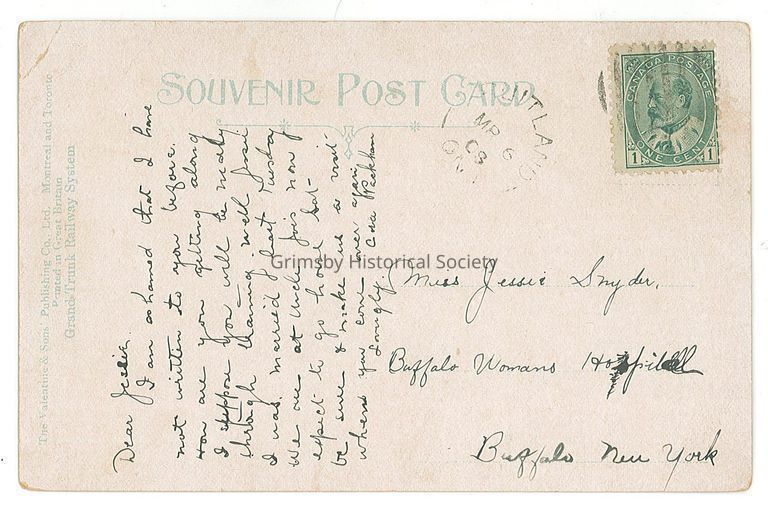 SOUVENIR POST CARD
CANADA POSTAGE
ONE CENT
1 1
MR 6
08
ONT
The Valentine & Sons' Publishing Co., Ltd. Montreal and Toronto
Printed in Great Britain
Grand Trunk Railway System
Dear Jessie.
I am ashamed that I have
not written to you before.
How are you getting along
I suppose you will be nearly
through training. well Jessie
I was married last Tuesday
We are at Uncle Joes now
expect to go home Sat-
be sure & make us a visit
when you come over again
Lovingly
Miss Jessie Snyder,
Buffalo Womans Hospital
Buffalo New York
Grimsby Historical Society